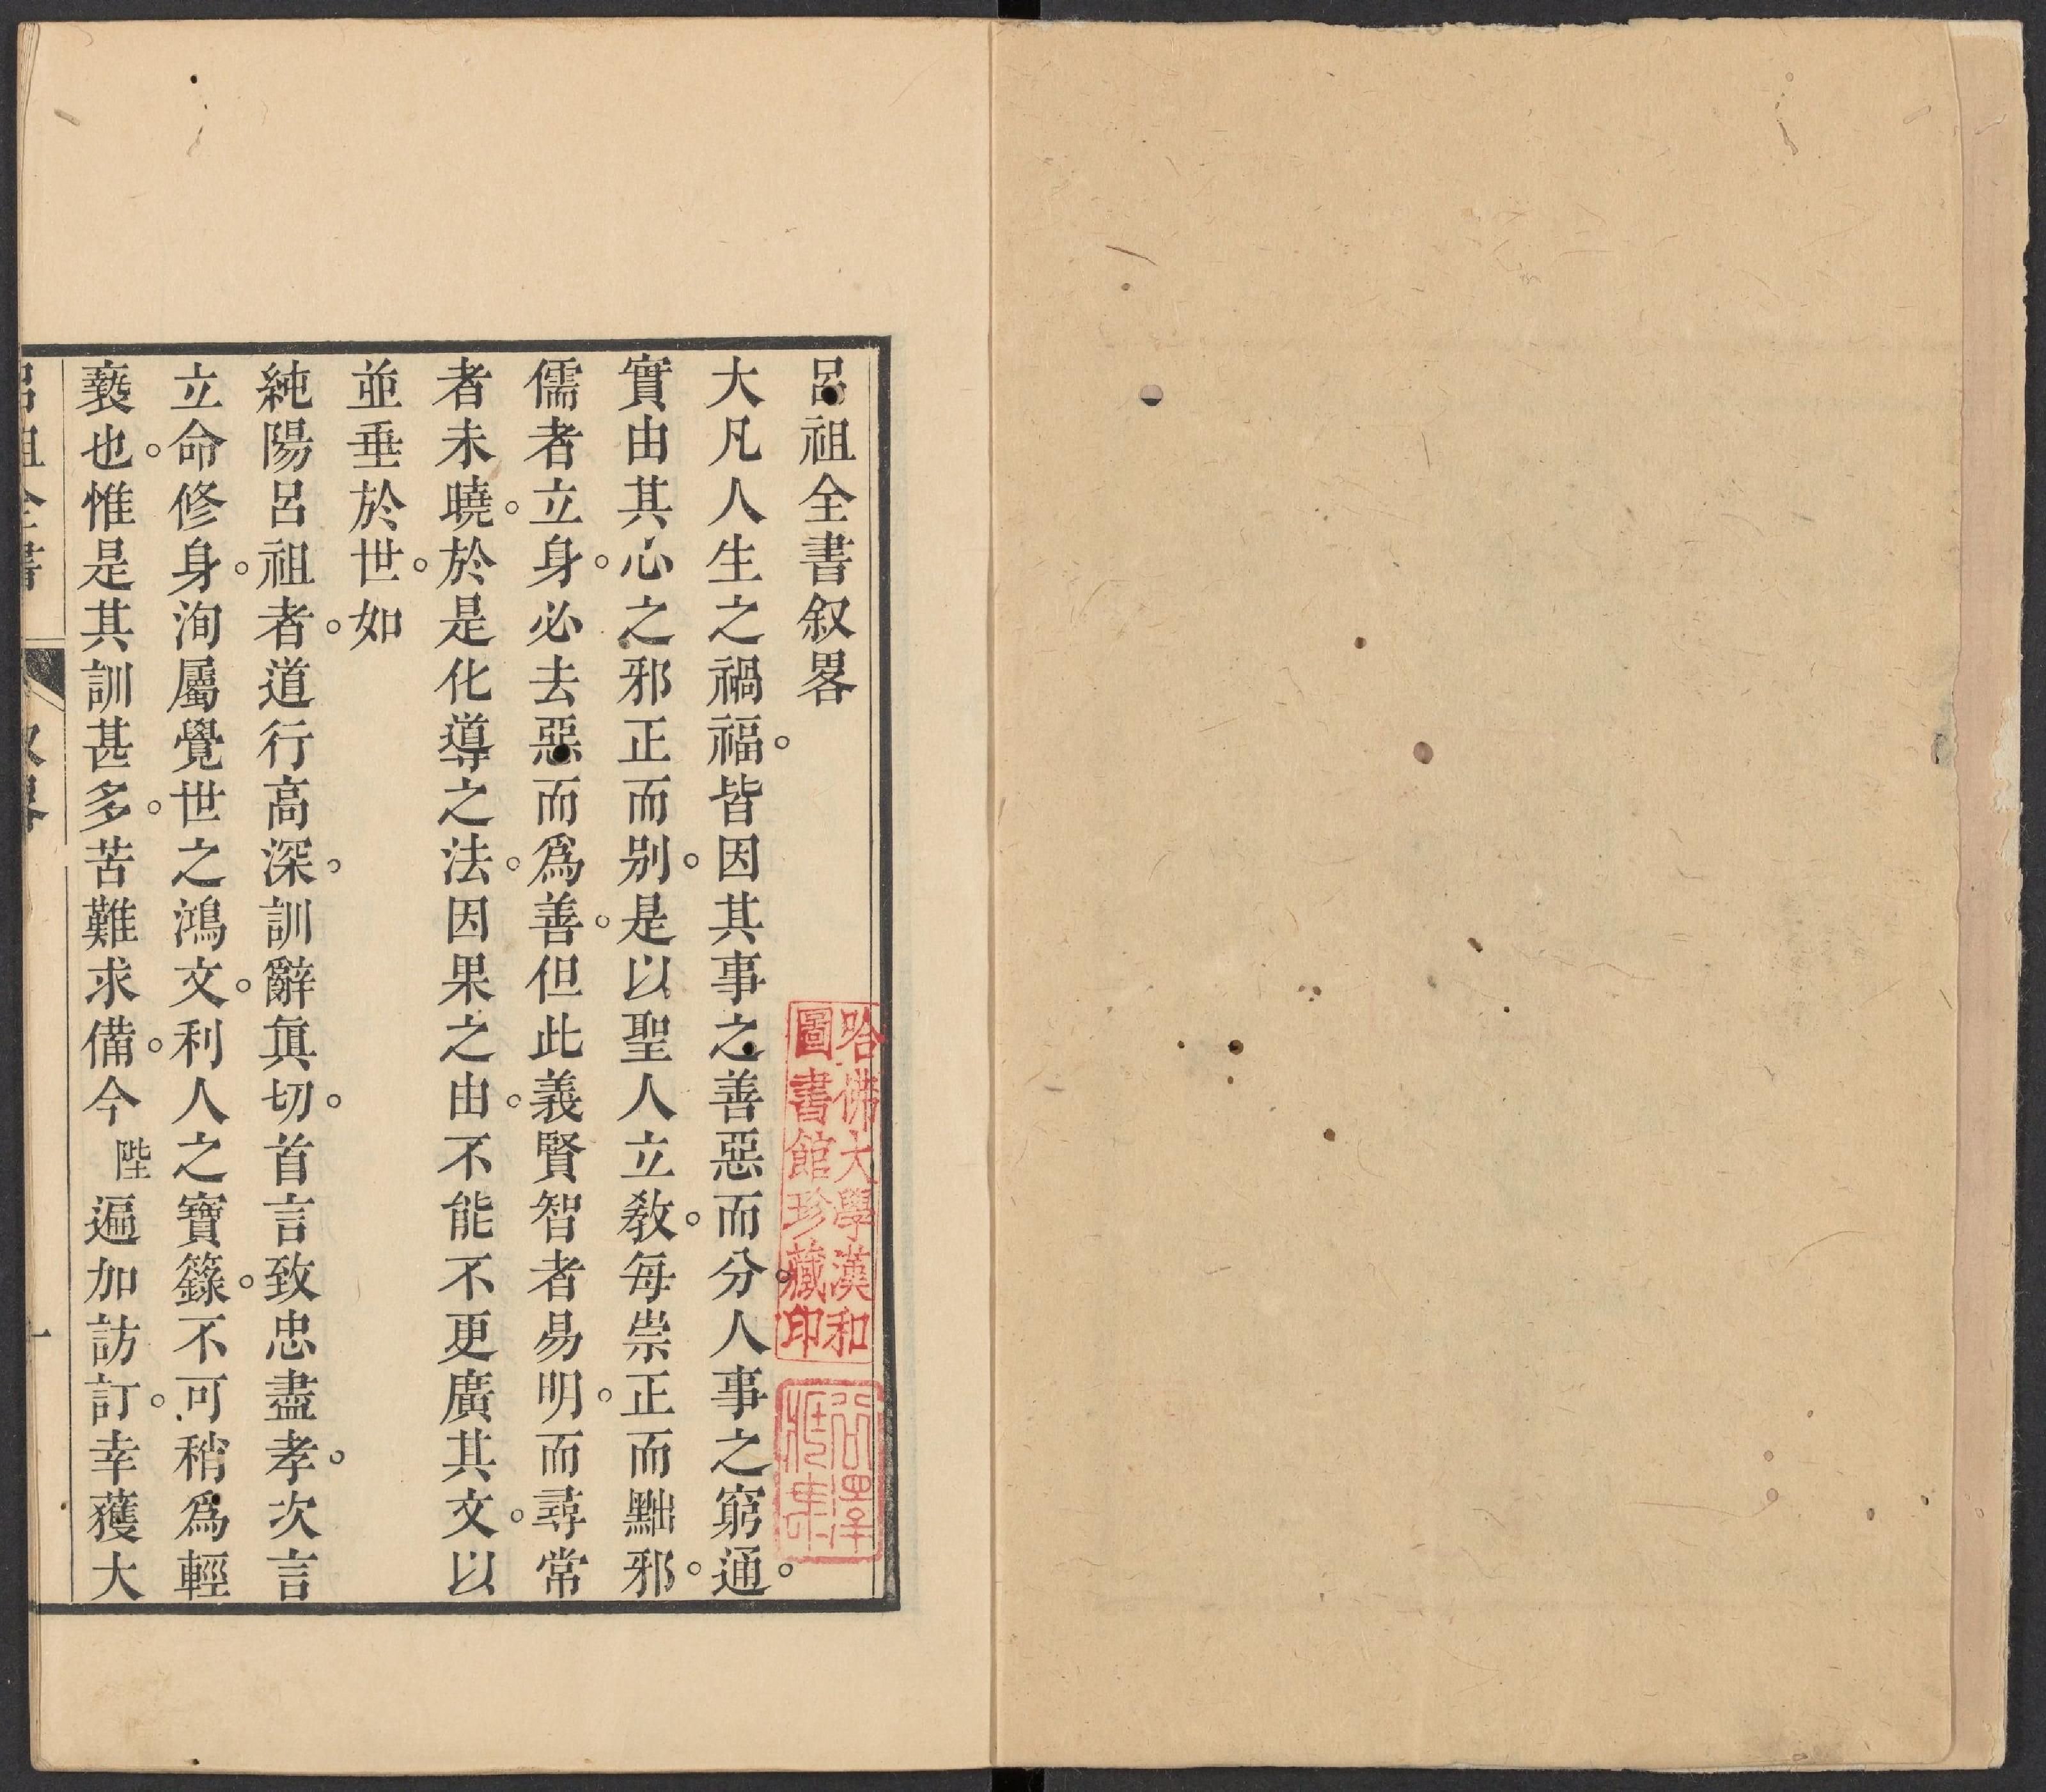 呂祖全書叙畧
大凡人生之禍福。皆因其事之善惡而分。人事之窮通。
實由其心之邪正而别。是以聖人立敎。每崇正而黜邪。
儒者立身。必去惡而爲善。但此義賢智者易明。而尋常
者未曉。於是化導之法。因果之由。不能不更廣其文。以
並垂於世。如
純陽呂祖者。道行高深。訓辭眞切。首言致忠盡孝。次言
立命修身。洵屬覺世之鴻文。利人之寶籙。不可稍爲輕
褻也。惟是其訓甚多。苦難求備。今陛遍加訪訂。幸獲大
呂祖全書 叙畧 一
哈佛大學漢和
圖書館珍藏印